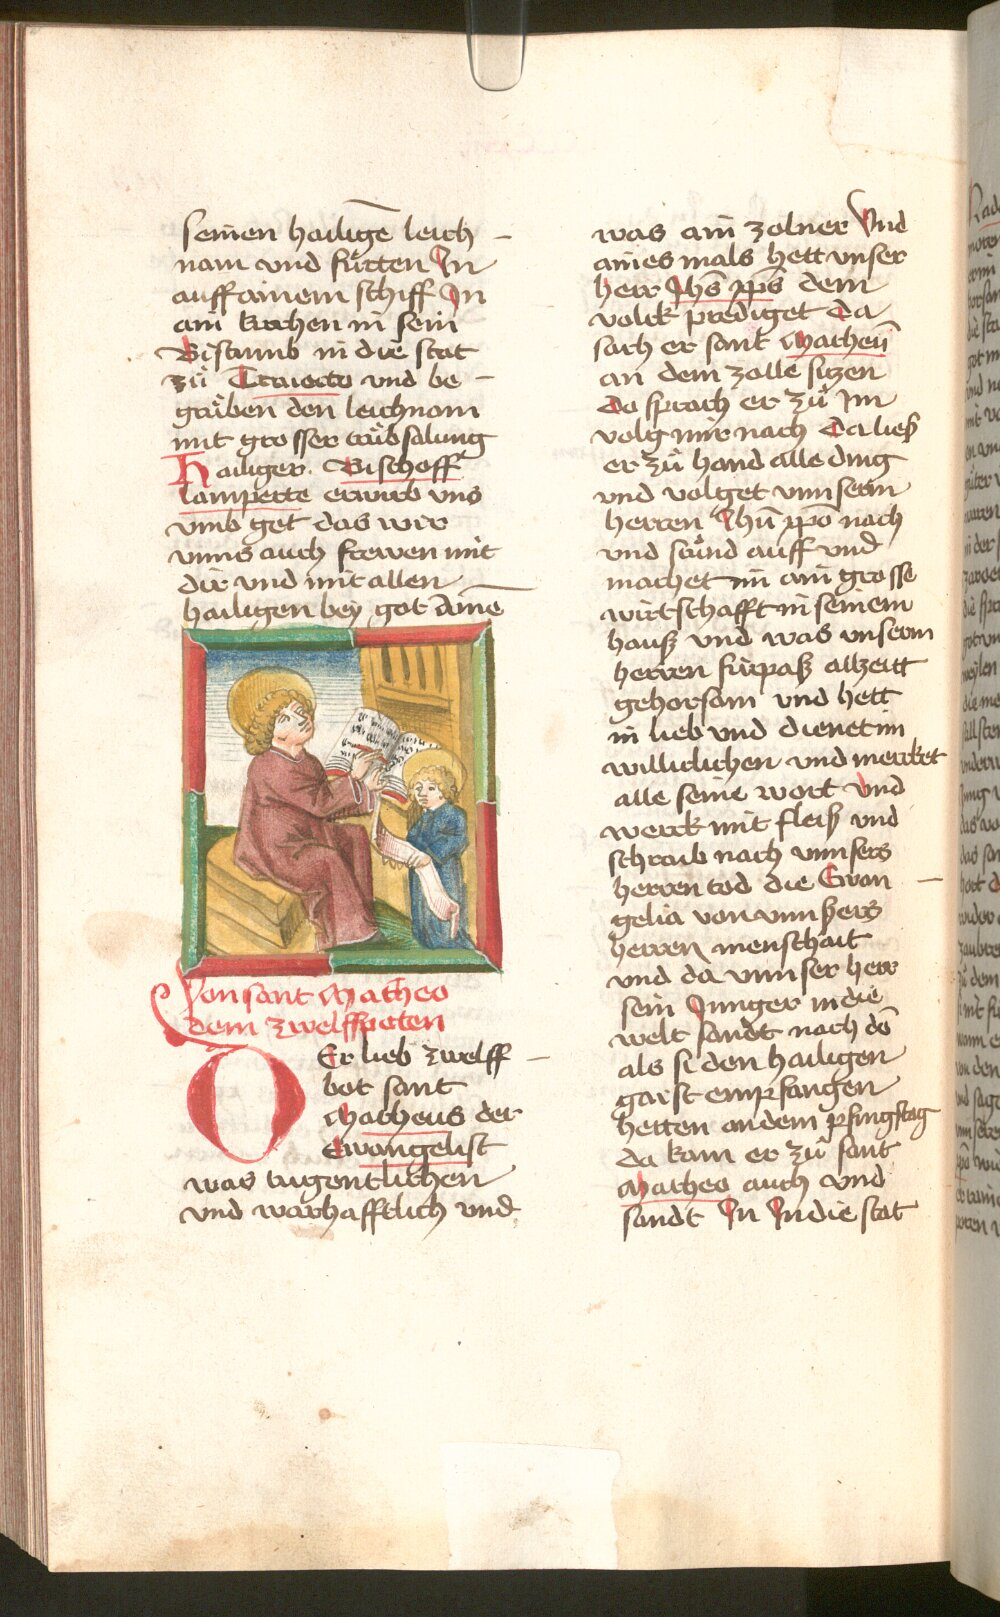 seinen hailigē leich –
nam vnd fuͤrten In
auff ainem schiff In
ain kirchen in sein
Bistumb in die stat
zuͦ Traiecto vnd be –
gruͦben den leichnam
mit grosser truͤbsalung
Hailiger Bischoff
lamperte erwirb vns
vmb got das wir
vnns auch frewen mit
dir vnd mit allen
hailigen bey got Amē
Von sant Matheo
dem zwelffpoten
DEr lieb zwelff –
bot sant
Matheus der
Ewangelist
was tugentlichen
vnd warhafftlich vnd
was ain zolner Vnd
aines mals hett vnser
herr Jhs̄ xp̄s dem
volck prediget Da
sach er sant Matheū
an dem zolle siczen
do sprach er zuͦ Im
volg mir nach Da liesz
er zuͦ hand alle ding
vnd volget vnnserm
herren Jhū xpō nach
vnd stuͦnd auff vnd
machet im ain grosse
wirtschafft in seinem
hausz vnd was vnserm
herren fürpasz allzeitt
gehorsam vnd hett
in lieb vnd dienet im
williclichen vnd mercket
alle seine wort Vnd
werck mit fleisz vnd
schraib nach vnnsers
herren tod die Ewon –
gelia von vnnsers
herren menschait
vnd da vnnser herr
sein Junger in die
welt sandt nach dē
als si den hailigen
gaist empfangen
hetten an dem pfingstag
da kam er zuͦ sant
Matheo auch vnd
sandt In In die stat